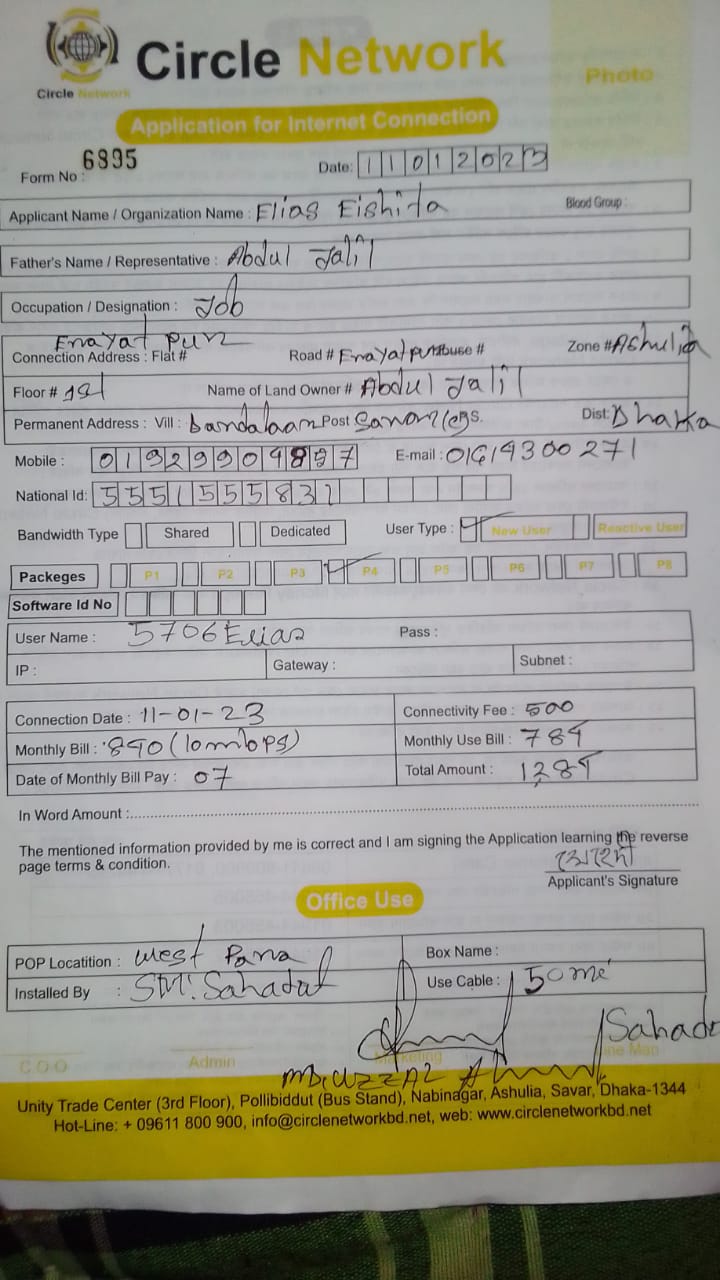 Circle Network
Circle Network
Photo
Application for Internet Connection
Form No : 6895
Date: 11012023
Applicant Name / Organization Name : Elias Eishita
Blood Group :
Father's Name / Representative : Abdul Jalil
Occupation / Designation : Job
Enayat pur
Connection Address : Flat # Road # Enayatpur House # Zone # Ashulia
Floor # 1st Name of Land Owner # Abdul Jalil
Permanent Address : Vill : Post P.S. Dist: Dhaka
Mobile : 01929909 7 E-mail : 01619300271
National Id: 5551555832
Bandwidth Type Shared Dedicated User Type : New User Reactive User
Packeges P1 P2 P3 P4 P5 P6 P7 P8
Software Id No
User Name : 5706Elias Pass :
IP : Gateway : Subnet :
Connection Date : 11-01-23 Connectivity Fee : 500
Monthly Bill : 890 (10mbps) Monthly Use Bill : 789
Date of Monthly Bill Pay : 07 Total Amount : 1289
In Word Amount :
The mentioned information provided by me is correct and I am signing the Application learning the reverse
page terms & condition.
Applicant's Signature
Office Use
POP Locatition : West Para Box Name :
Installed By : SM. Sahadat Use Cable : 150 me
Sahadat
COO Admin Marketing Line Man
MD. UZZAL
Unity Trade Center (3rd Floor), Pollibiddut (Bus Stand), Nabinagar, Ashulia, Savar, Dhaka-1344
Hot-Line: + 09611 800 900, info@circlenetworkbd.net, web: www.circlenetworkbd.net